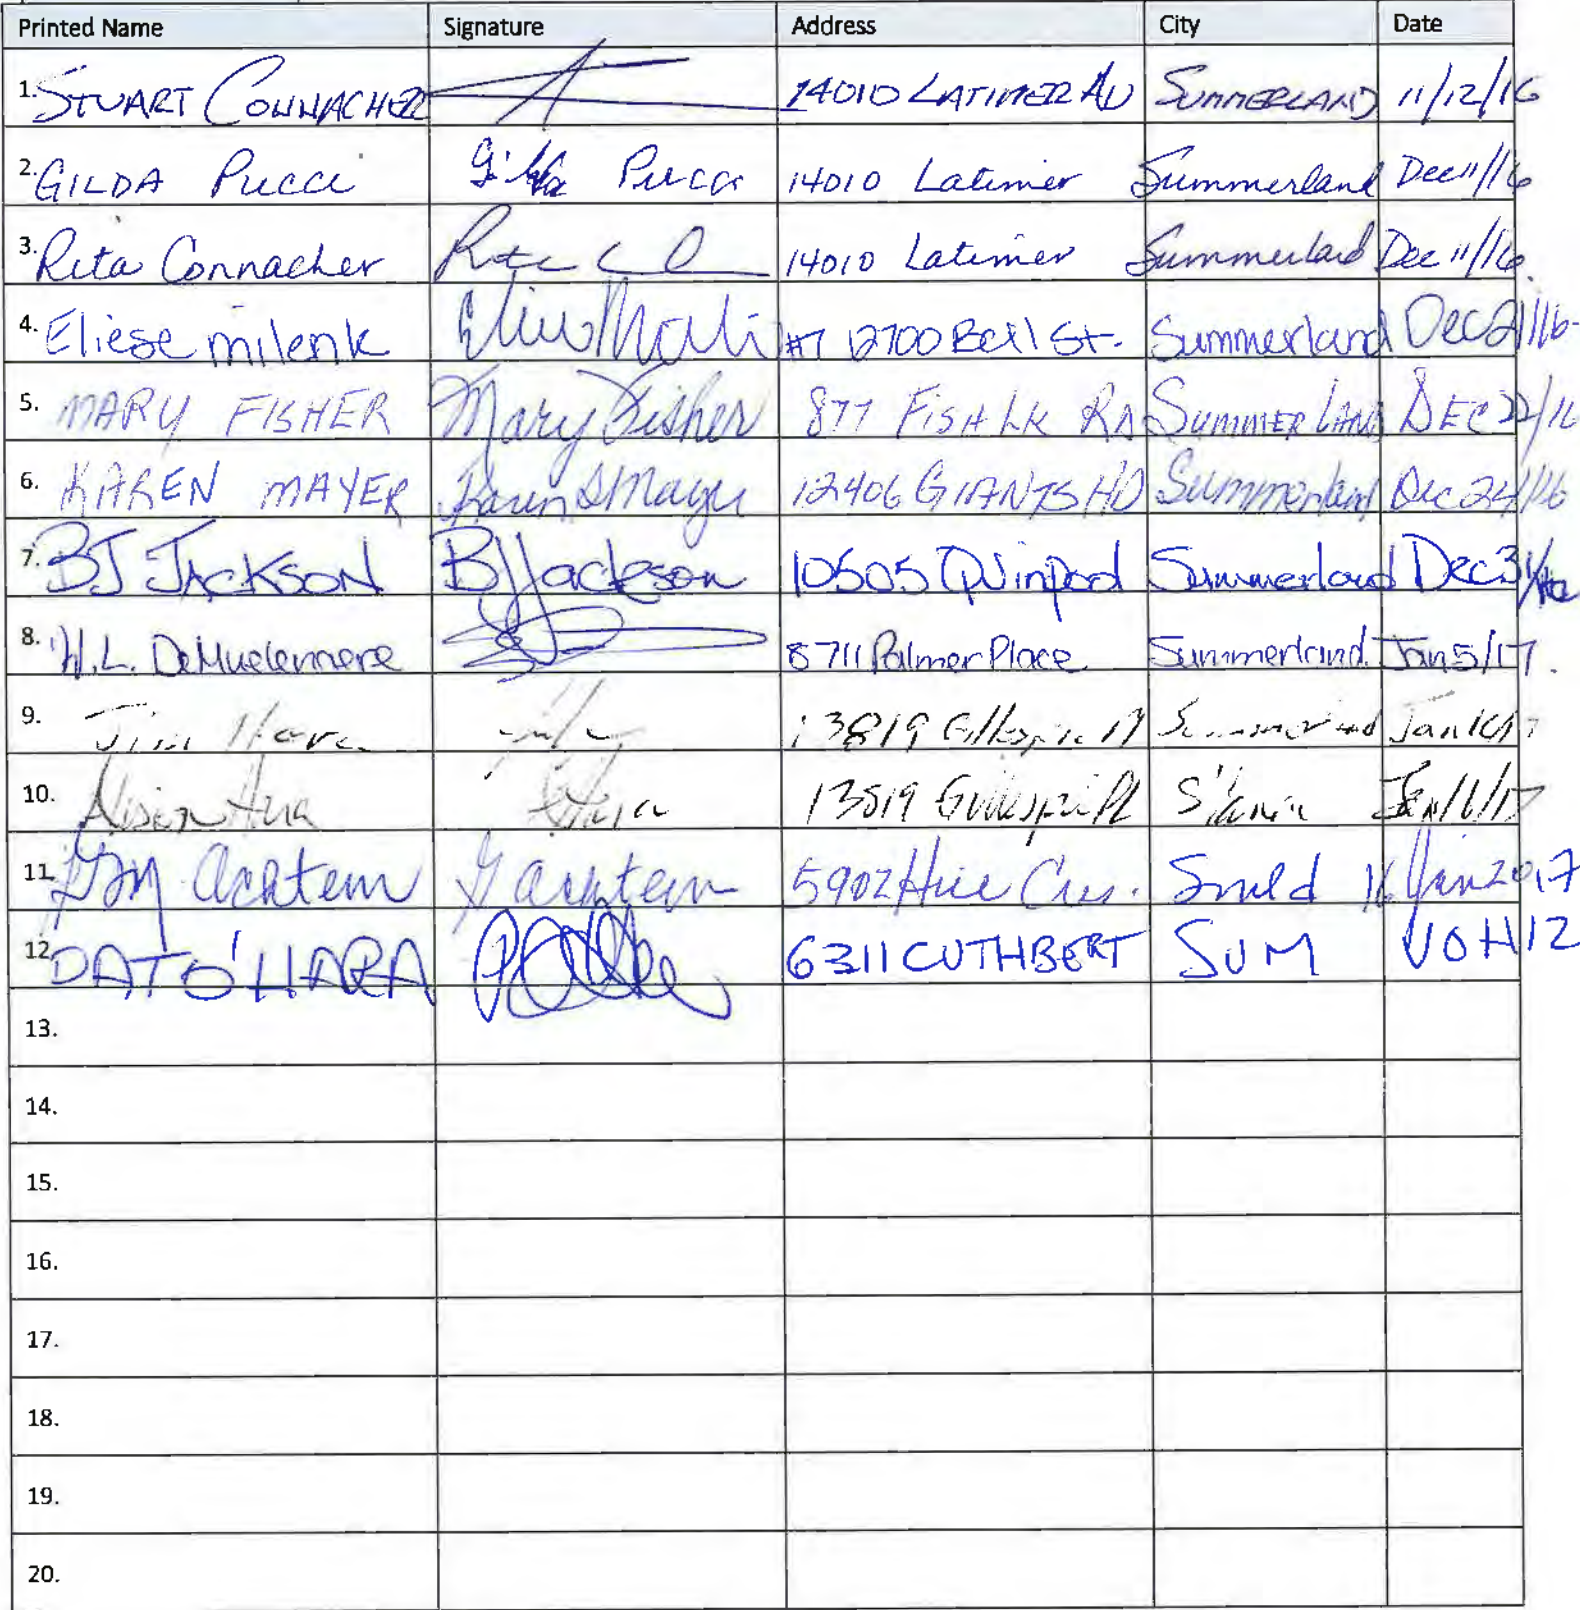 Printed Name Signature Address City Date
1. STUART CONNACHER 14010 LATIMER AV SUMMERLAND 11/12/16
2. GILDA Pucci Gilda Pucci 14010 Latimer Summerland Dec 11/16
3. Rita Connacher 14010 Latimer Summerland Dec 11/16
4. Eliese milenk #7 12700 Bell St. Summerland Dec 21/16
5. MARY FISHER Mary Fisher 877 FISH LK RD SUMMERLAND DEC 22/16
6. KAREN MAYER Karen S Mayer 12406 GIANTS HD Summerland Dec 24/16
7. BJ JACKSON BJ Jackson 10505 Summerland Dec 31/16
8. 8711 Palmer Place Summerland Jan 5/17.
9. 13819 Gillespie Pl Summerland
10. 13819 Gillespie Pl
11. GM Achtem G Achtem 5902 Cres. Smld 16 Jan 2017
12. PAT O'HARA 6311 CUTHBERT SUM V0H1Z
13.
14.
15.
16.
17.
18.
19.
20.